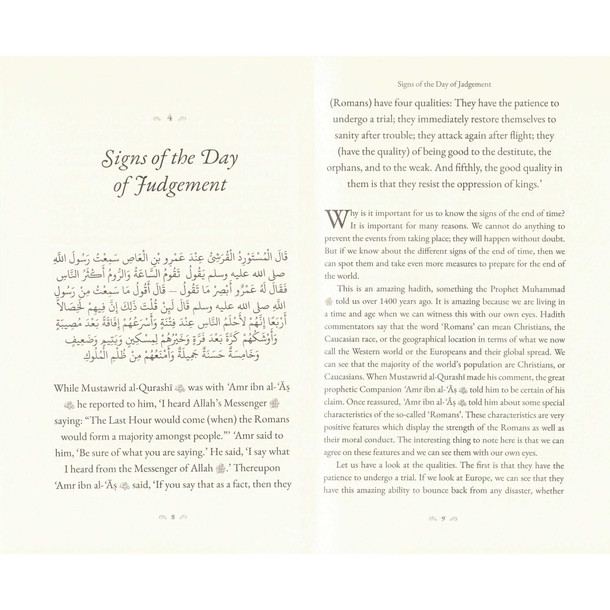 4
Signs of the Day
of Judgement
قَالَ الْمُسْتَوْرِدُ الْقُرَشِيُّ عِنْدَ عَمْرِو بْنِ الْعَاصِ سَمِعْتُ رَسُولَ اللَّهِ
صلى الله عليه وسلم يَقُولُ تَقُومُ السَّاعَةُ وَالرُّومُ أَكْثَرُ النَّاسِ
فَقَالَ لَهُ عَمْرٌو أَبْصِرْ مَا تَقُولُ – قَالَ أَقُولُ مَا سَمِعْتُ مِنْ رَسُولِ
اللَّهِ صلى الله عليه وسلم قَالَ لَئِنْ قُلْتَ ذَلِكَ إِنَّ فِيهِمْ لَخِصَالاً
أَرْبَعًا إِنَّهُمْ لأَحْلَمُ النَّاسِ عِنْدَ فِتْنَةٍ وَأَسْرَعُهُمْ إِفَاقَةً بَعْدَ مُصِيبَةٍ
وَأَوْشَكُهُمْ كَرَّةً بَعْدَ فَرَّةٍ وَخَيْرُهُمْ لِمِسْكِينٍ وَيَتِيمٍ وَضَعِيفٍ
وَخَامِسَةٌ حَسَنَةٌ جَمِيلَةٌ وَأَمْنَعُهُمْ مِنْ ظُلْمِ الْمُلُوكِ
While Mustawrid al-Qurashī ﷺ was with ‘Amr ibn al-‘Āṣ
ﷺ he reported to him, ‘I heard Allah’s Messenger ﷺ
saying: “The Last Hour would come (when) the Romans
would form a majority amongst people.”’ ‘Amr said to
him, ‘Be sure of what you are saying.’ He said, ‘I say what
I heard from the Messenger of Allah ﷺ.’ Thereupon
‘Amr ibn al-‘Āṣ said, ‘If you say that as a fact, then they
8
Signs of the Day of Jadgement
(Romans) have four qualities: They have the patience to
undergo a trial; they immediately restore themselves to
sanity after trouble; they attack again after flight; they
(have the quality) of being good to the destitute, the
orphans, and to the weak. And fifthly, the good quality in
them is that they resist the oppression of kings.’
Why is it important for us to know the signs of the end of time?
It is important for many reasons. We cannot do anything to
prevent the events from taking place; they will happen without doubt.
But if we know about the different signs of the end of time, then we
can spot them and take even more measures to prepare for the end of
the world.
This is an amazing hadith, something the Prophet Muhammad
ﷺ told us over 1400 years ago. It is amazing because we are living in
a time and age when we can witness this with our own eyes. Hadith
commentators say that the word ‘Romans’ can mean Christians, the
Caucasian race, or the geographical location in terms of what we now
call the Western world or the Europeans and their global spread. We
can see that the majority of the world’s population are Christians, or
Caucasians. When Mustawrid al-Qurashī made his comment, the great
prophetic Companion ‘Amr ibn al-‘Āṣ told him to be certain of his
claim. Once reassured, ‘Amr ibn al-‘Āṣ told him about some special
characteristics of the so-called ‘Romans’. These characteristics are very
positive features which display the strength of the Romans as well as
their moral conduct. The interesting thing to note here is that we can
agree on these features and we can see them with our own eyes.
Let us have a look at the qualities. The first is that they have the
patience to undergo a trial. If we look at Europe, we can see that they
have this amazing ability to bounce back from any disaster, whether
9